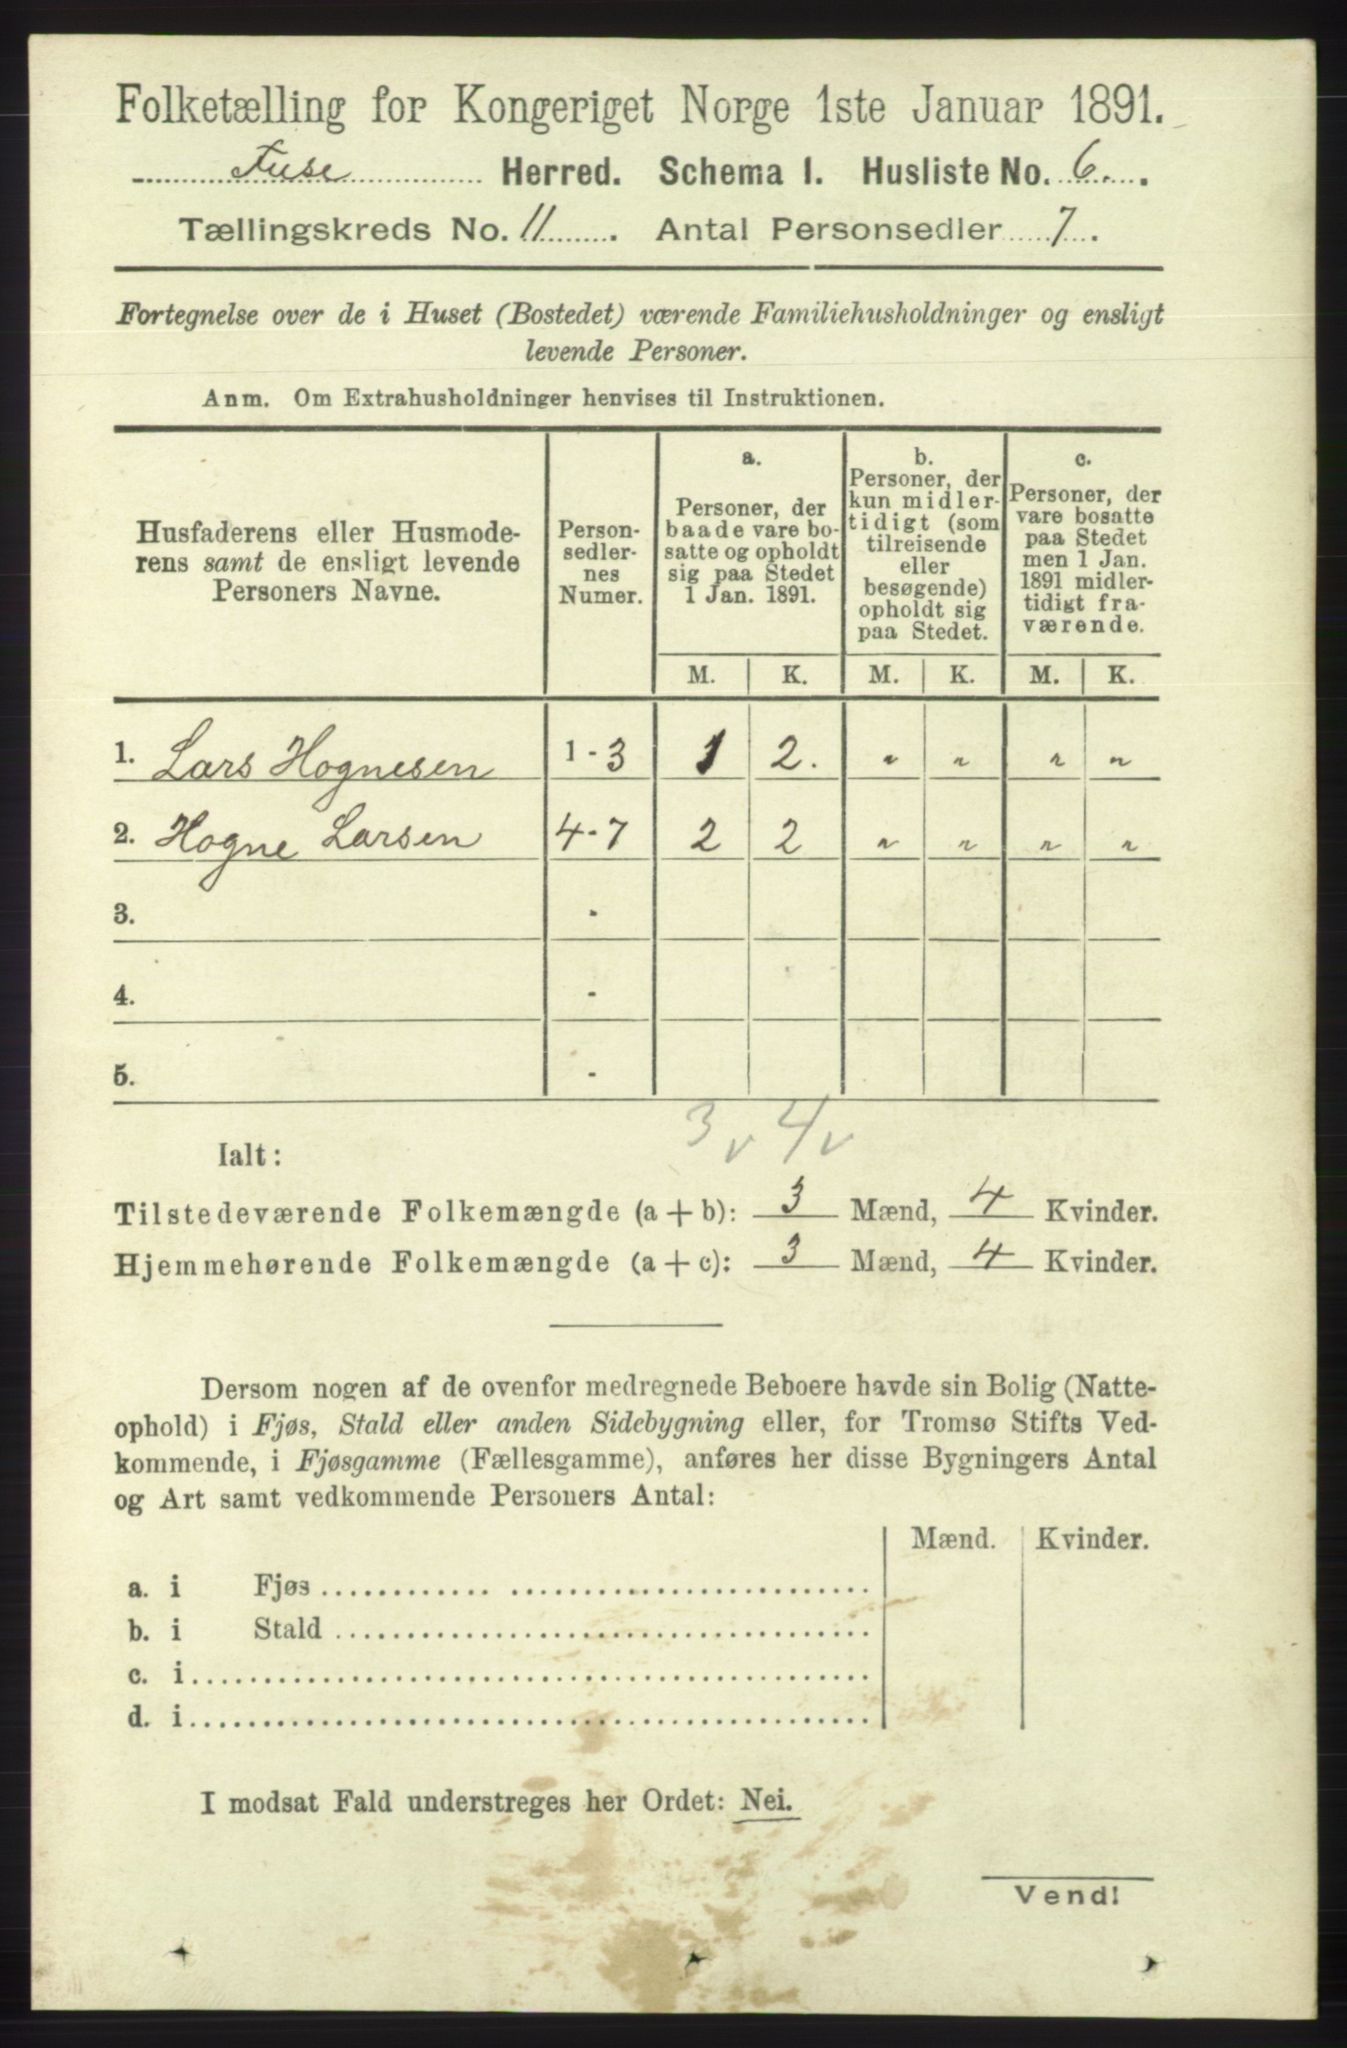 Folketælling for Kongeriget Norge 1ste Januar 1891.
Fuse Herred. Schema 1. Husliste No. 6.
Tællingskreds No. 11 . Antal Personsedler 7 .
Fortegnelse over de i Huset (Bostedet) værende Familiehusholdninger og ensligt
levende Personer.
Anm. Om Extrahusholdninger henvises til Instruktionen.
Husfaderens eller Husmode-
rens samt de ensligt levende
Personers Navne.
Person-
sedler-
nes
Numer.
a.
Personer, der
baade vare bo-
satte og opholdt
sig paa Stedet
1 Jan. 1891.
b.
Personer, der
kun midler-
tidigt (som
tilreisende
eller
besøgende)
opholdt sig
paa Stedet.
c.
Personer, der
vare bosatte
paa Stedet
men 1 Jan.
1891 midler-
tidigt fra-
værende.
M. K. M. K. M. K.
1. Lars Hognesen 1-3 1 2. " " " "
2. Hogne Larsen 4-7 2 2 " " " "
3. -
4. -
5. -
3 v 4 v
Ialt:
Tilstedeværende Folkemængde (a + b): 3 Mænd, 4 Kvinder.
Hjemmehørende Folkemængde (a + c): 3 Mænd, 4 Kvinder.
Dersom nogen af de ovenfor medregnede Beboere havde sin Bolig (Natte-
ophold) i Fjøs, Stald eller anden Sidebygning eller, for Tromsø Stifts Ved-
kommende, i Fjøsgamme (Fællesgamme), anføres her disse Bygningers Antal
og Art samt vedkommende Personers Antal:
Mænd. Kvinder.
a. i Fjøs
b. i Stald
c. i
d. i
I modsat Fald understreges her Ordet: Nei.
Vend!